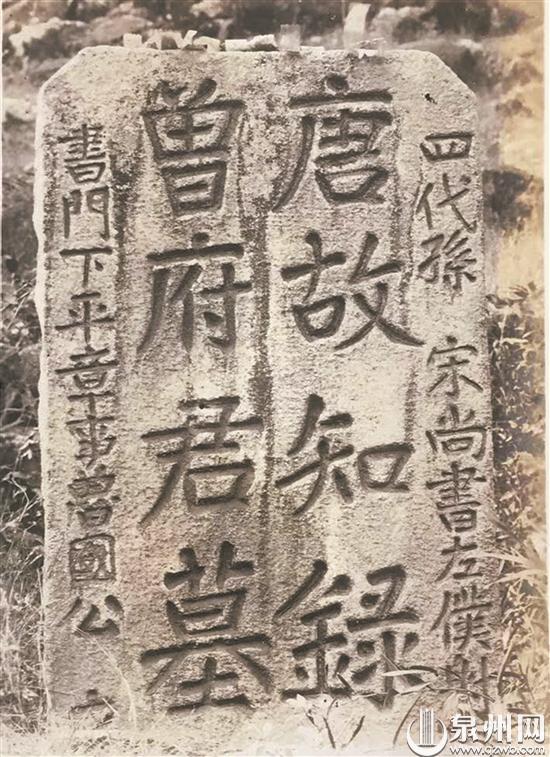 四代孫 宋尚書左僕射
唐故知録
曾府君墓
書門下平章事魯國公
泉州网
www.qzwb.com